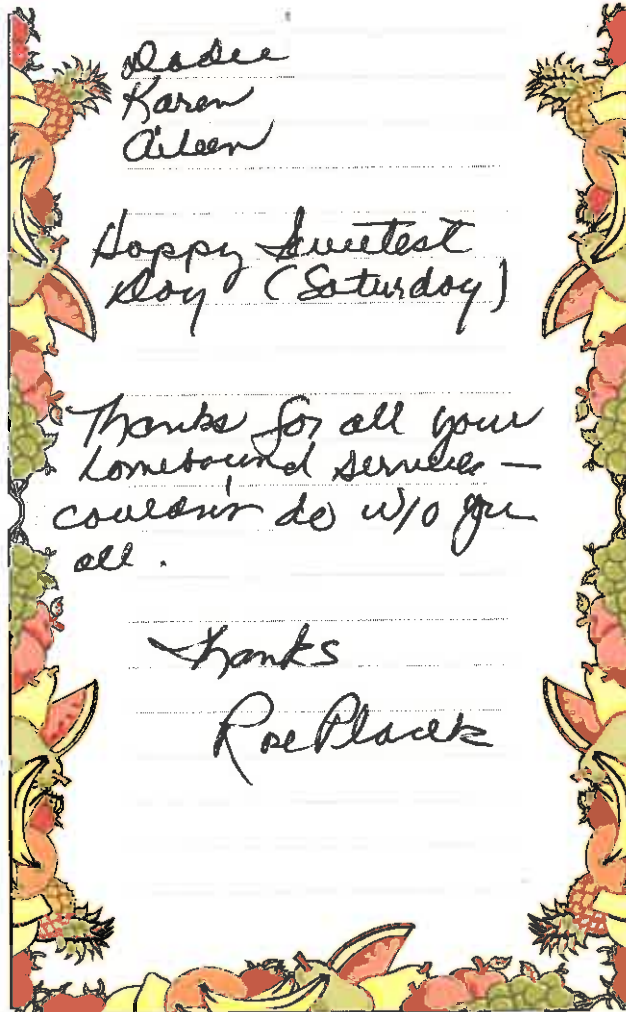 Dadee
Karen
Aileen
Happy Sweetest
Day (Saturday)
Thanks for all your
homebound services —
couldn't do w/o you
all.
Thanks
Roe Placek